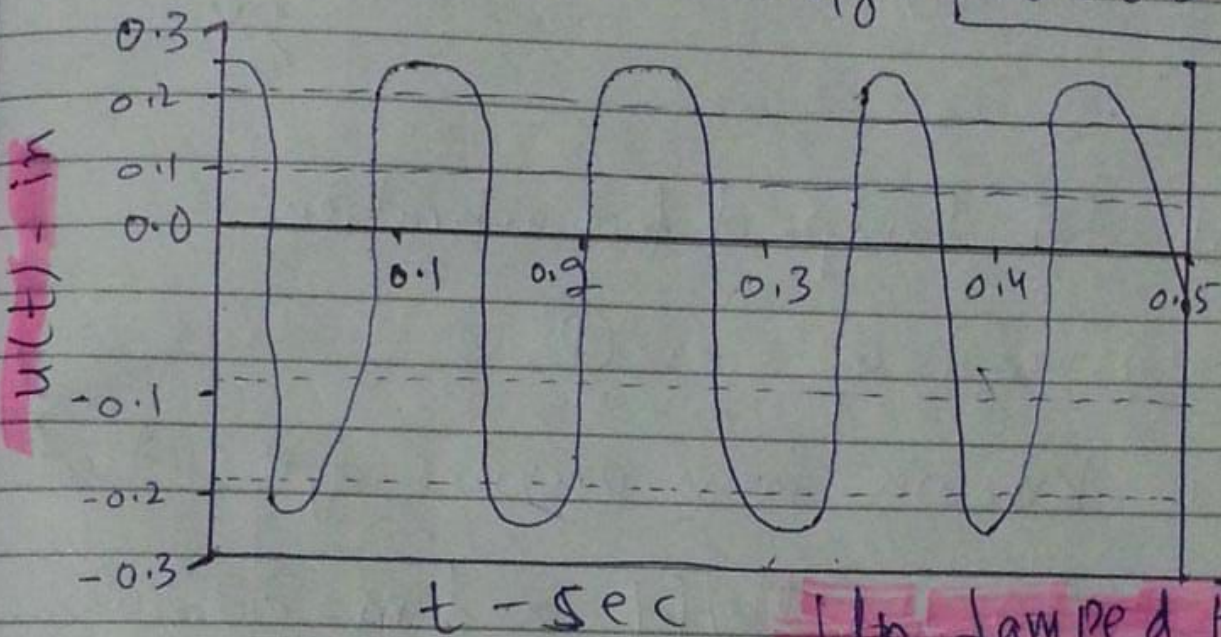 0.3
0.2
0.1
0.0
-0.1
-0.2
-0.3
u(t) - in
0.1
0.2
0.3
0.4
0.5
t - sec
Un damped